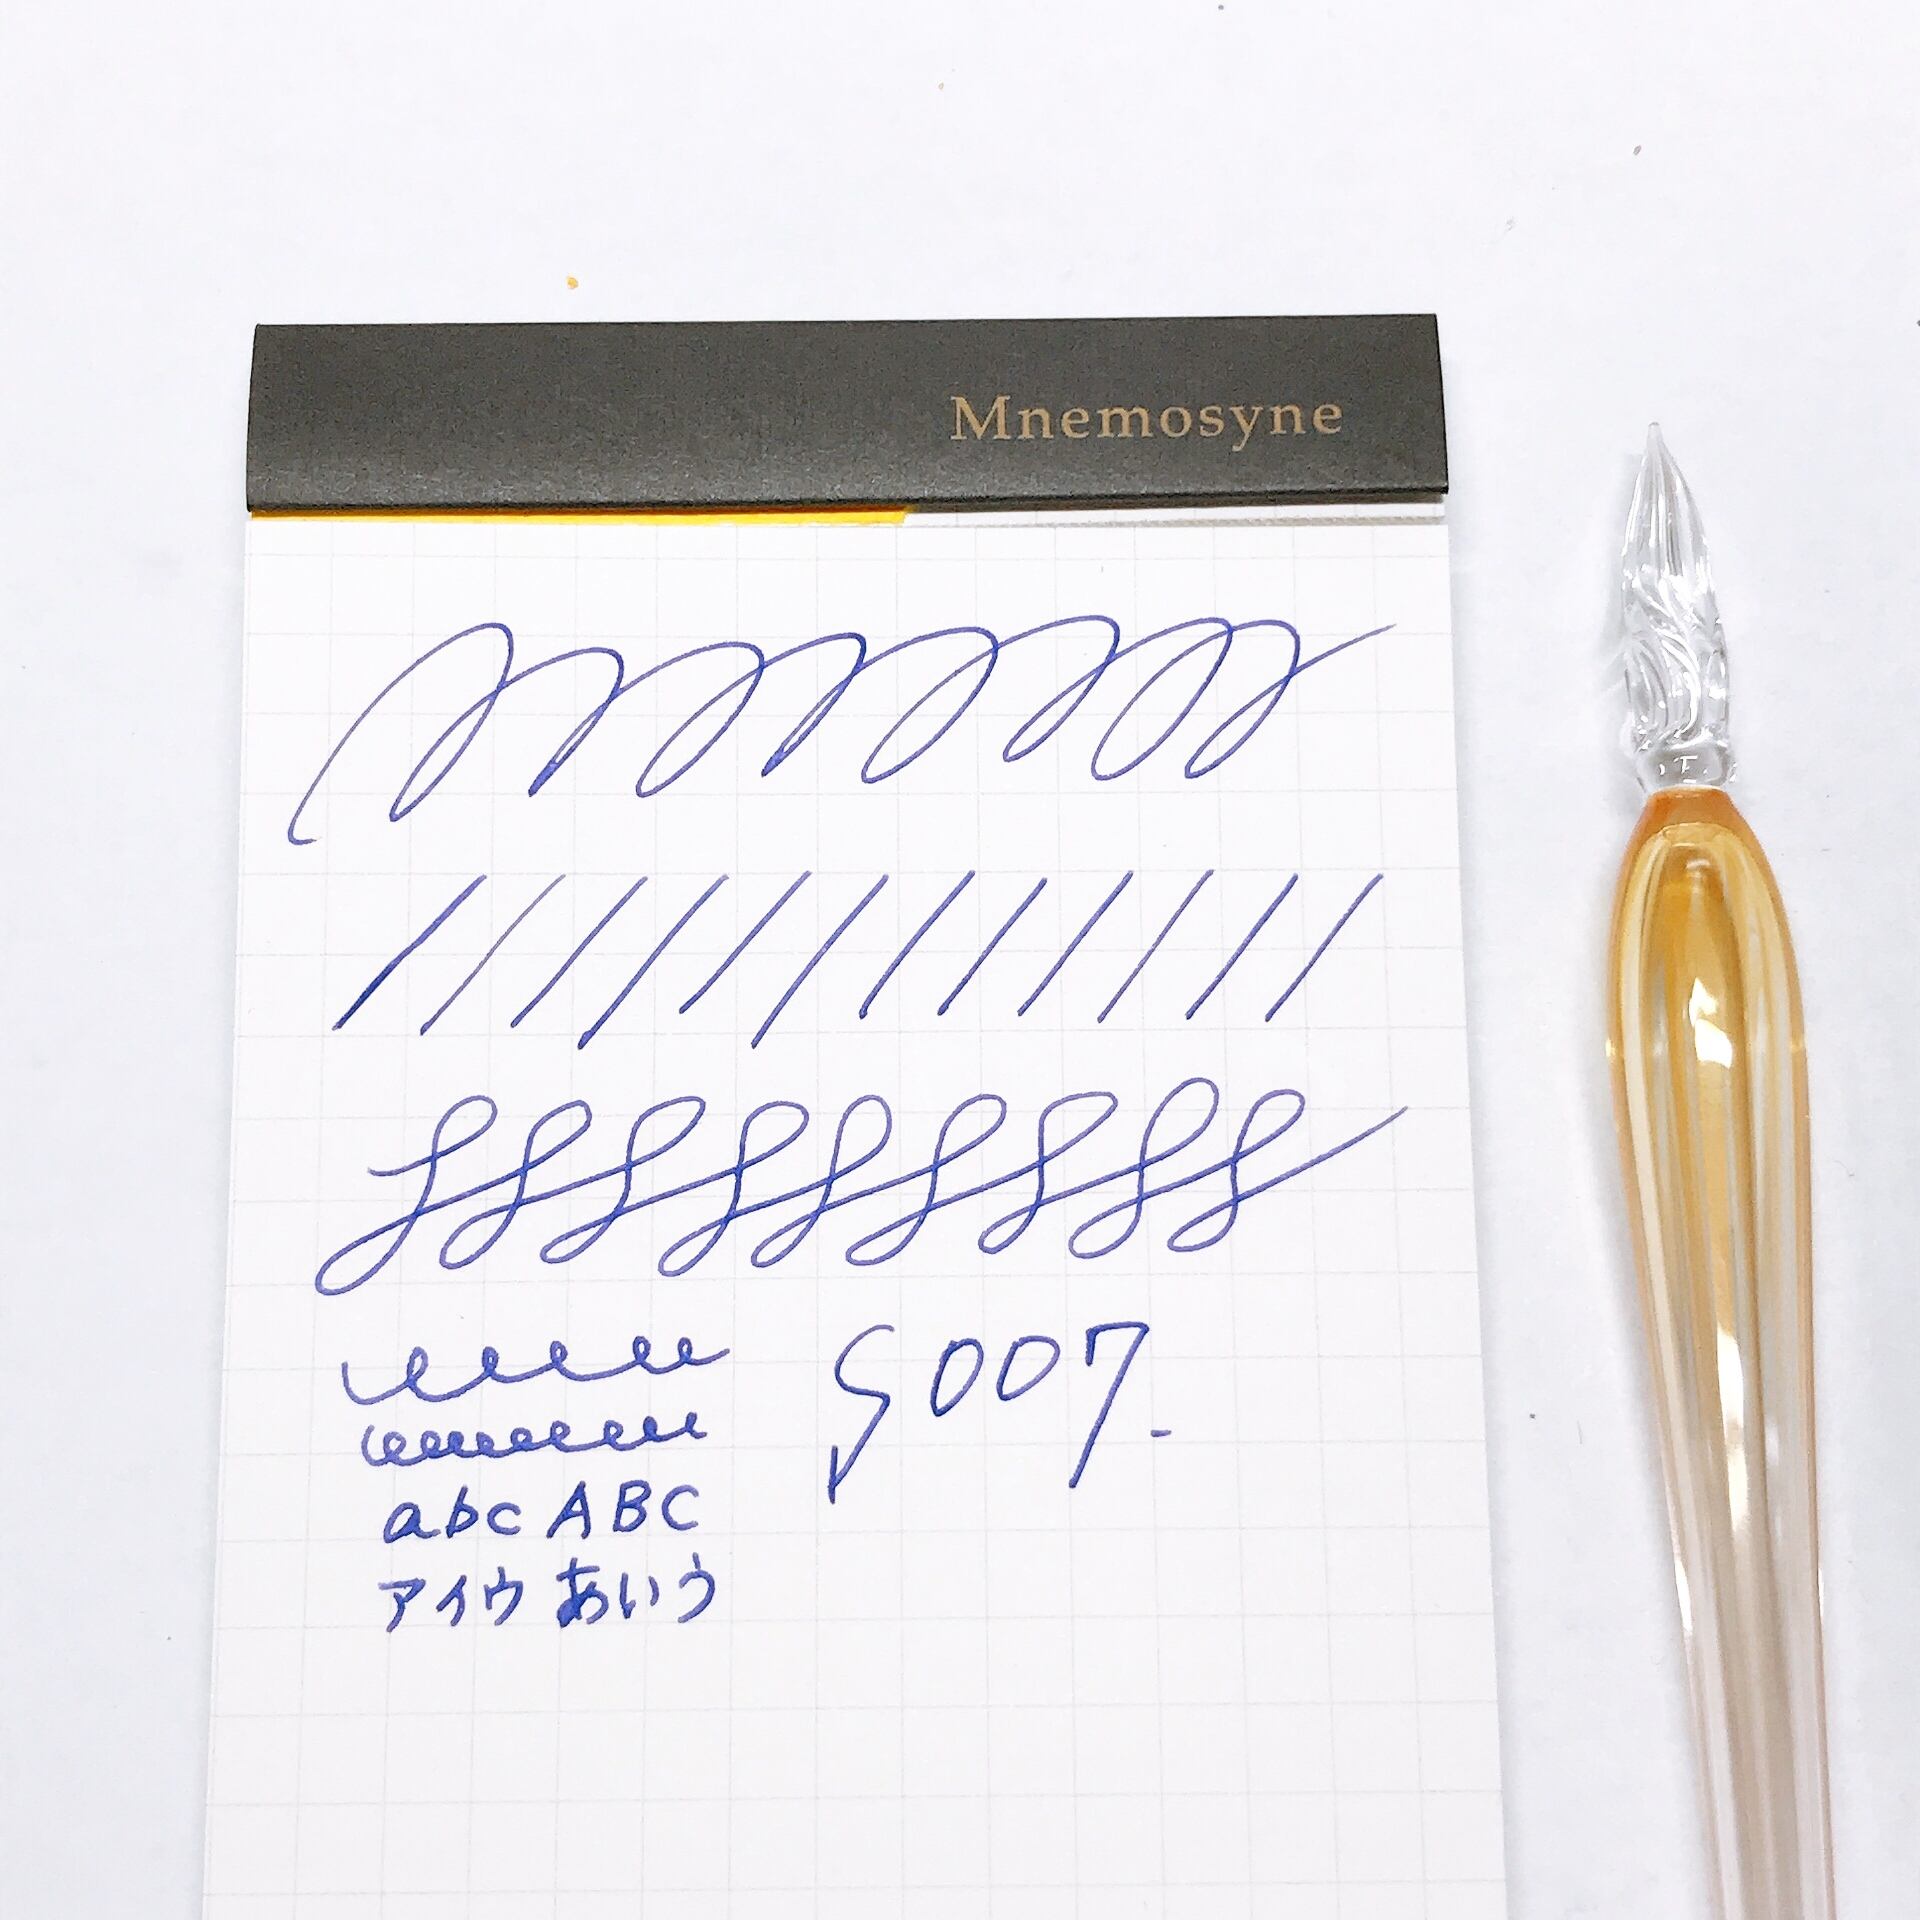 Mnemosyne
S007.
abc ABC
アイウ あいう